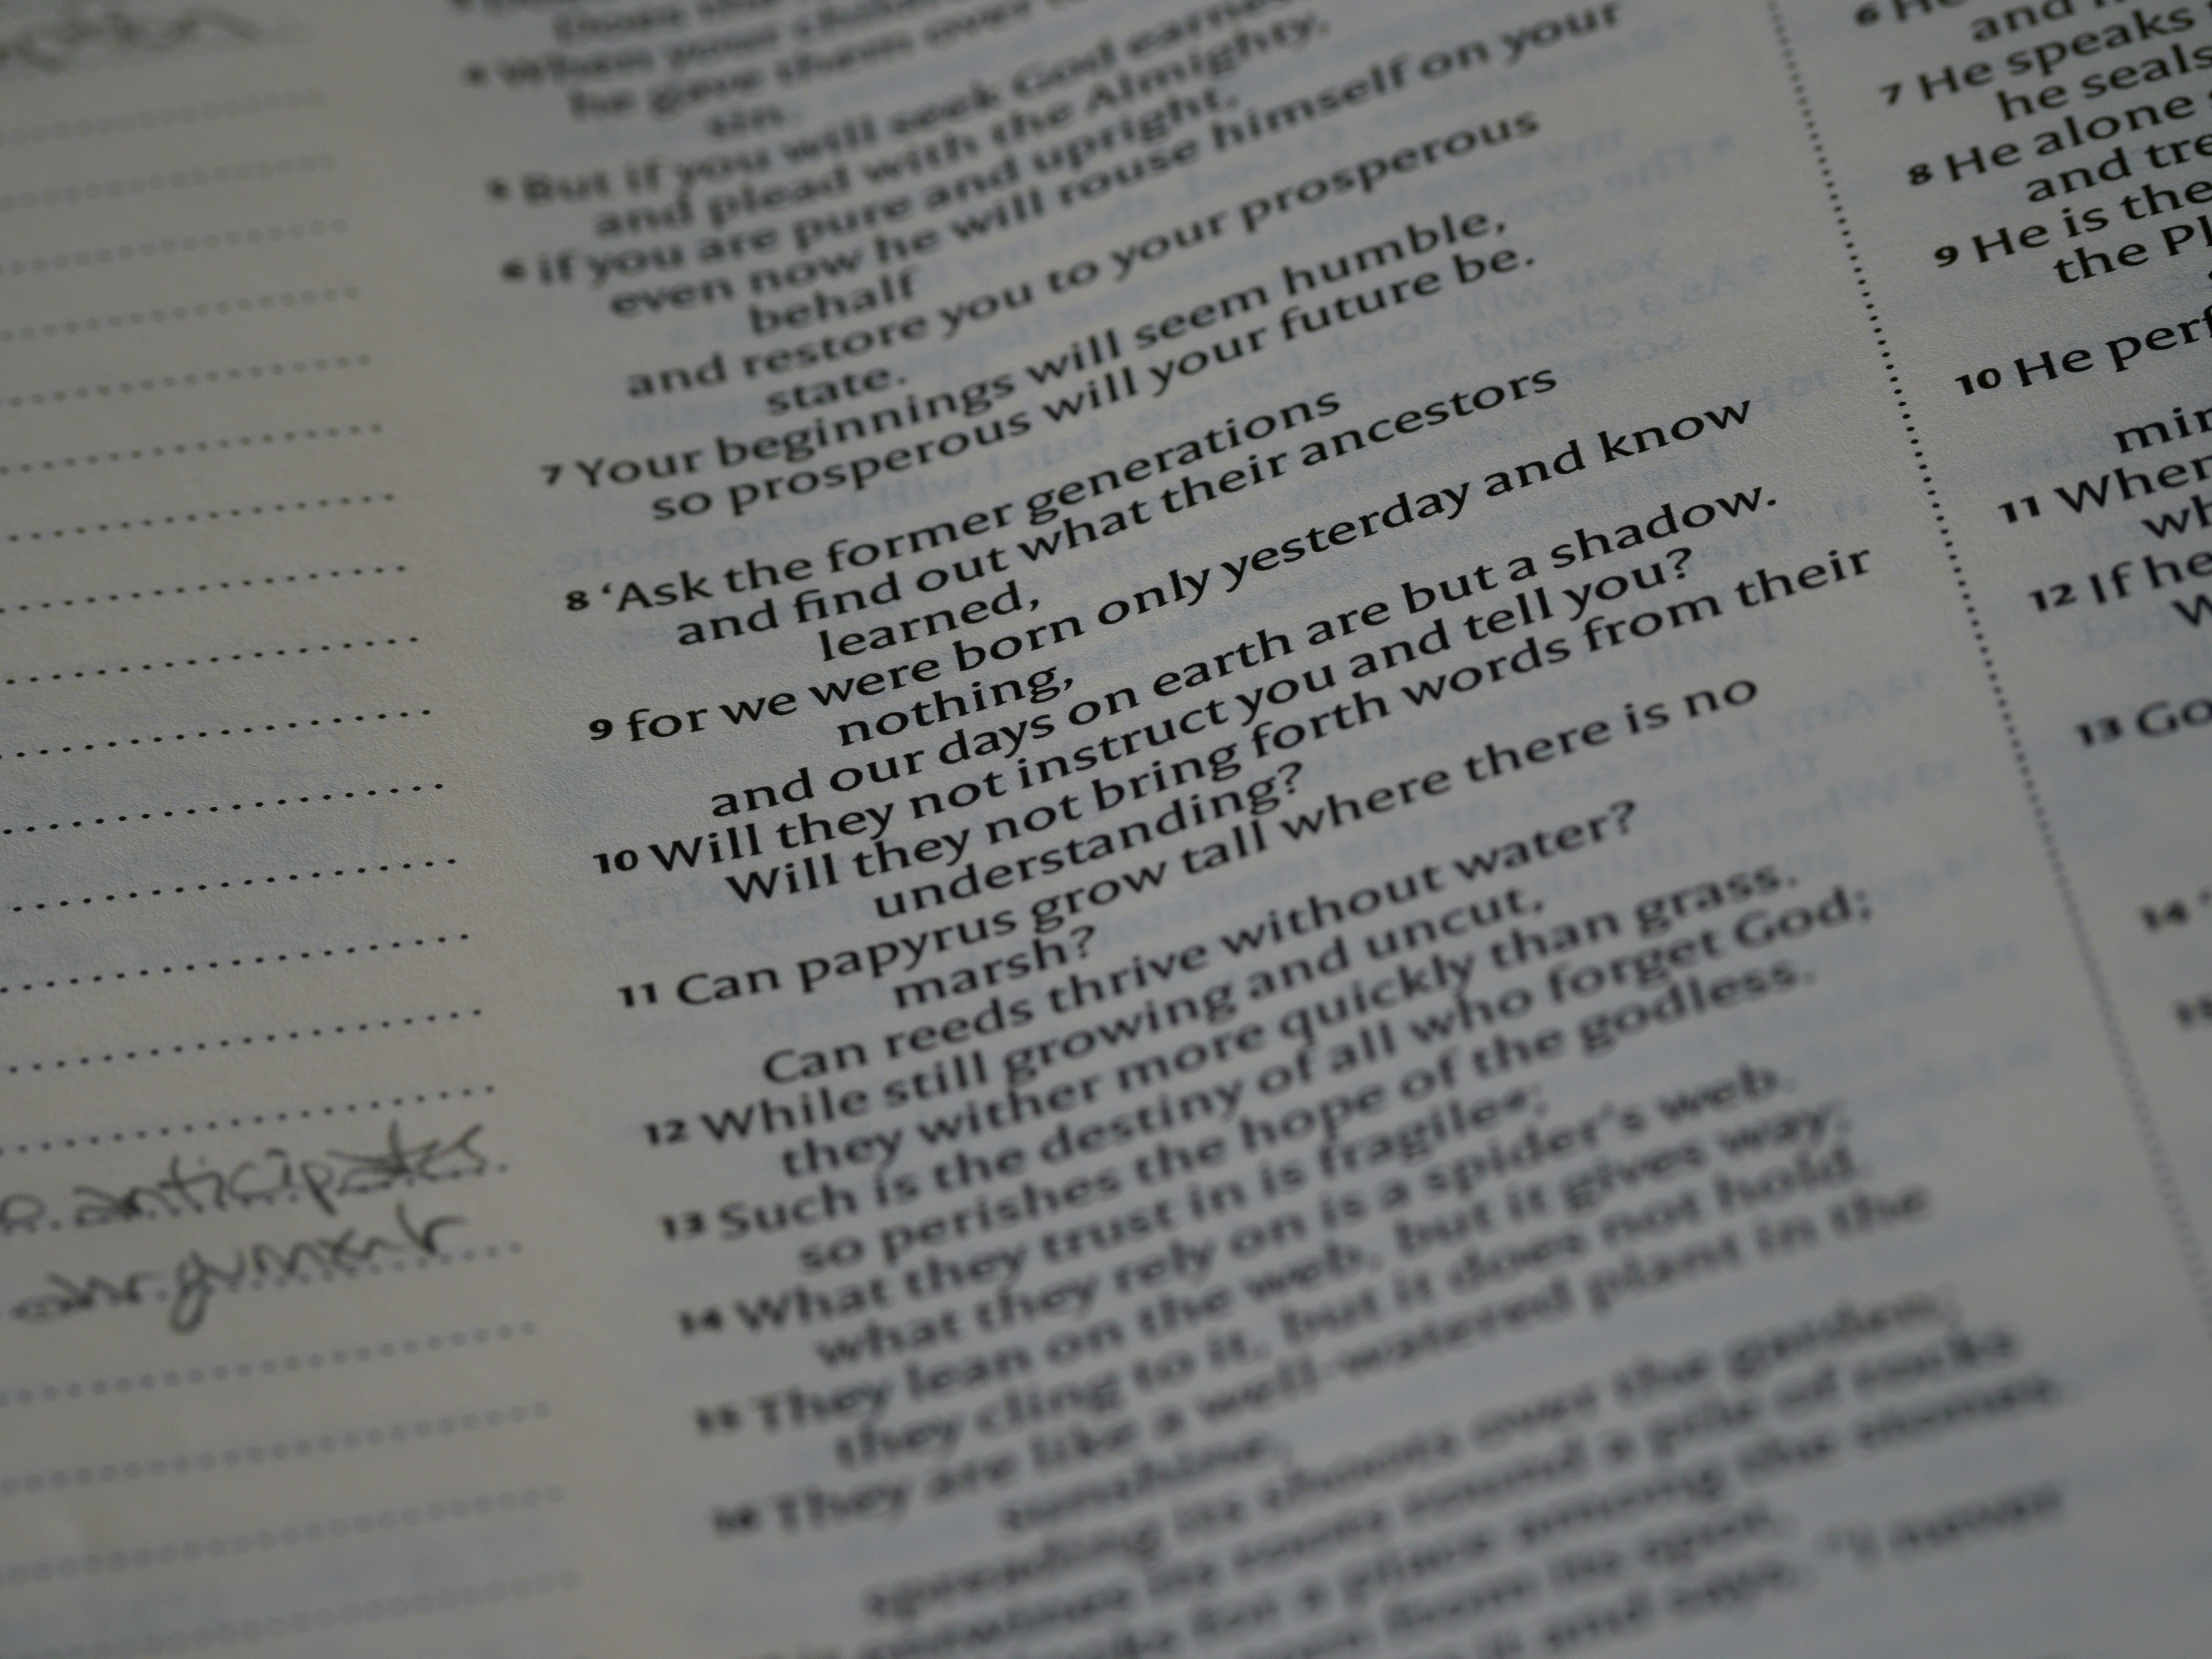 anticipates
When your
he gave them over
sin.
5 But if you will seek God
and plead with the Almighty,
6 if you are pure and upright,
even now he will rouse himself on your
behalf
and restore you to your prosperous
state.
7 Your beginnings will seem humble,
so prosperous will your future be.
8 ‘Ask the former generations
and find out what their ancestors
learned,
9 for we were born only yesterday and know
nothing,
and our days on earth are but a shadow.
10 Will they not instruct you and tell you?
Will they not bring forth words from their
understanding?
11 Can papyrus grow tall where there is no
marsh?
Can reeds thrive without water?
12 While still growing and uncut,
they wither more quickly than grass.
13 Such is the destiny of all who forget God;
so perishes the hope of the godless.
14 What they trust in is fragile;
what they rely on is a spider’s web.
15 They lean on the web, but it gives way;
they cling to it, but it does not hold.
16 They are like a well-watered plant in the
sunshine,
spreading its shoots over the garden;
its roots round a pile of rocks
for a place among the stones.
6 He
and
7 He speaks
he seals
8 He alone
and
9 He is the
the
10 He
11 When
12 If he
13
14